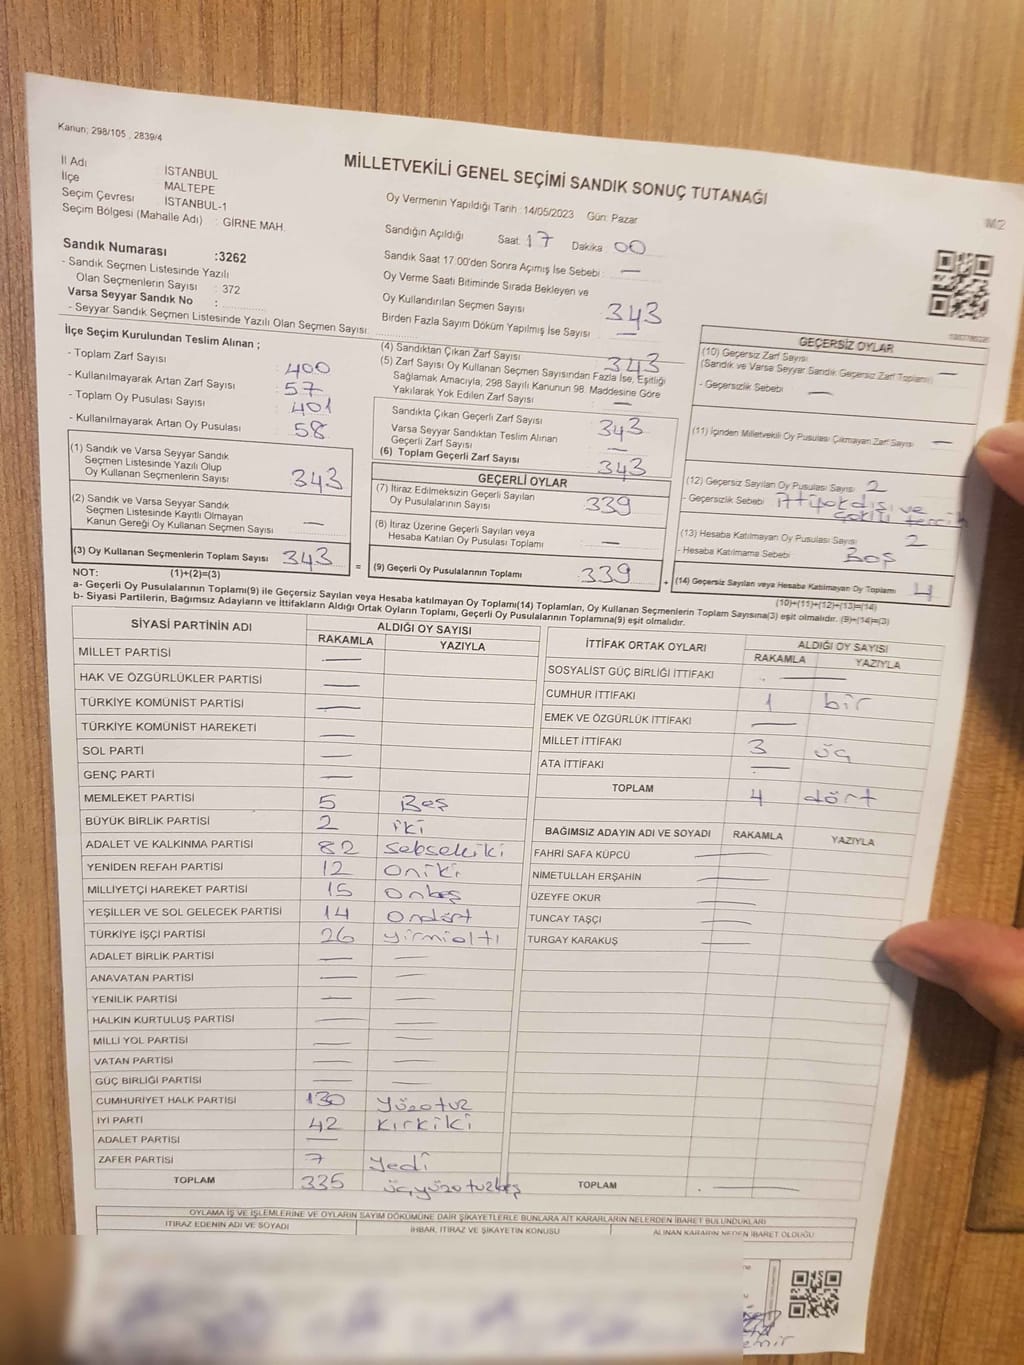 Kanun; 298/105 , 2839/4
MİLLETVEKİLİ GENEL SEÇİMİ SANDIK SONUÇ TUTANAĞI
M2
İl Adı : İSTANBUL
İlçe : MALTEPE
Seçim Çevresi : İSTANBUL-1
Seçim Bölgesi (Mahalle Adı) : GİRNE MAH.
Sandık Numarası :3262
- Sandık Seçmen Listesinde Yazılı
Olan Seçmenlerin Sayısı : 372
Varsa Seyyar Sandık No :
- Seyyar Sandık Seçmen Listesinde Yazılı Olan Seçmen Sayısı:
Oy Vermenin Yapıldığı Tarih :14/05/2023 Gün: Pazar
Sandığın Açıldığı Saat: 17 Dakika 00
Sandık Saat 17.00'den Sonra Açımış İse Sebebi : —
Oy Verme Saati Bitiminde Sırada Bekleyen ve
Oy Kullandırılan Seçmen Sayısı : 343
Birden Fazla Sayım Döküm Yapılmış İse Sayısı : —
İlçe Seçim Kurulundan Teslim Alınan ;
- Toplam Zarf Sayısı : 400
- Kullanılmayarak Artan Zarf Sayısı : 57
- Toplam Oy Pusulası Sayısı : 401
- Kullanılmayarak Artan Oy Pusulası : 58
(1) Sandık ve Varsa Seyyar Sandık
Seçmen Listesinde Yazılı Olup
Oy Kullanan Seçmenlerin Sayısı : 343
(2) Sandık ve Varsa Seyyar Sandık
Seçmen Listesinde Kayıtlı Olmayan
Kanun Gereği Oy Kullanan Seçmen Sayısı : —
(3) Oy Kullanan Seçmenlerin Toplam Sayısı : 343
(1)+(2)=(3)
(4) Sandıktan Çıkan Zarf Sayısı : 343
(5) Zarf Sayısı Oy Kullanan Seçmen Sayısından Fazla İse, Eşitliği
Sağlamak Amacıyla, 298 Sayılı Kanunun 98. Maddesine Göre
Yakılarak Yok Edilen Zarf Sayısı : —
Sandıkta Çıkan Geçerli Zarf Sayısı : 343
Varsa Seyyar Sandıktan Teslim Alınan
Geçerli Zarf Sayısı : —
(6) Toplam Geçerli Zarf Sayısı : 343
GEÇERLİ OYLAR
(7) İtiraz Edilmeksizin Geçerli Sayılan
Oy Pusulalarının Sayısı : 339
(8) İtiraz Üzerine Geçerli Sayılan veya
Hesaba Katılan Oy Pusulası Toplamı : —
(9) Geçerli Oy Pusulalarının Toplamı : 339
GEÇERSİZ OYLAR
(10) Geçersiz Zarf Sayısı
(Sandık ve Varsa Seyyar Sandık Geçersiz Zarf Toplamı) : —
- Geçersizlik Sebebi : —
(11) İçinden Milletvekili Oy Pusulası Çıkmayan Zarf Sayısı : —
(12) Geçersiz Sayılan Oy Pusulası Sayısı : 2
- Geçersizlik Sebebi : ittifak dışı ve
çoklu tercih
(13) Hesaba Katılmayan Oy Pusulası Sayısı : 2
- Hesaba Katılmama Sebebi : Boş
(14) Geçersiz Sayılan veya Hesaba Katılmayan Oy Toplamı : 4
(10)+(11)+(12)+(13)=(14)
NOT:
a- Geçerli Oy Pusulalarının Toplamı(9) ile Geçersiz Sayılan veya Hesaba katılmayan Oy Toplamı(14) Toplamları, Oy Kullanan Seçmenlerin Toplam Sayısına(3) eşit olmalıdır. (9)+(14)=(3)
b- Siyasi Partilerin, Bağımsız Adayların ve İttifakların Aldığı Ortak Oyların Toplamı, Geçerli Oy Pusulalarının Toplamına(9) eşit olmalıdır.
SİYASİ PARTİNİN ADI ALDIĞI OY SAYISI
RAKAMLA YAZIYLA
MİLLET PARTİSİ —
HAK VE ÖZGÜRLÜKLER PARTİSİ —
TÜRKİYE KOMÜNİST PARTİSİ —
TÜRKİYE KOMÜNİST HAREKETİ —
SOL PARTİ —
GENÇ PARTİ —
MEMLEKET PARTİSİ 5 Beş
BÜYÜK BİRLİK PARTİSİ 2 iki
ADALET VE KALKINMA PARTİSİ 82 seksekiki
YENİDEN REFAH PARTİSİ 12 oniki
MİLLİYETÇİ HAREKET PARTİSİ 15 onbeş
YEŞİLLER VE SOL GELECEK PARTİSİ 14 ondört
TÜRKİYE İŞÇİ PARTİSİ 26 yirmialtı
ADALET BİRLİK PARTİSİ — —
ANAVATAN PARTİSİ — —
YENİLİK PARTİSİ — —
HALKIN KURTULUŞ PARTİSİ — —
MİLLİ YOL PARTİSİ — —
VATAN PARTİSİ — —
GÜÇ BİRLİĞİ PARTİSİ — —
CUMHURİYET HALK PARTİSİ 130 yüzotuz
İYİ PARTİ 42 kırkiki
ADALET PARTİSİ —
ZAFER PARTİSİ 7 yedi
TOPLAM 335 üçyüzotuzbeş
İTTİFAK ORTAK OYLARI ALDIĞI OY SAYISI
RAKAMLA YAZIYLA
SOSYALİST GÜÇ BİRLİĞİ İTTİFAKI —
CUMHUR İTTİFAKI 1 bir
EMEK VE ÖZGÜRLÜK İTTİFAKI —
MİLLET İTTİFAKI 3 üç
ATA İTTİFAKI —
TOPLAM 4 dört
BAĞIMSIZ ADAYIN ADI VE SOYADI RAKAMLA YAZIYLA
FAHRİ SAFA KÜPCÜ —
NİMETULLAH ERŞAHİN —
ÜZEYFE OKUR —
TUNCAY TAŞÇI —
TURGAY KARAKUŞ —
TOPLAM —
OYLAMA İŞ VE İŞLEMLERİNE VE OYLARIN SAYIM DÖKÜMÜNE DAİR ŞİKAYETLERLE BUNLARA AİT KARARLARIN NELERDEN İBARET BULUNDUKLARI
İTİRAZ EDENİN ADI VE SOYADI İHBAR, İTİRAZ VE ŞİKAYETİN KONUSU ALINAN KARARIN NEDEN İBARET OLDUĞU